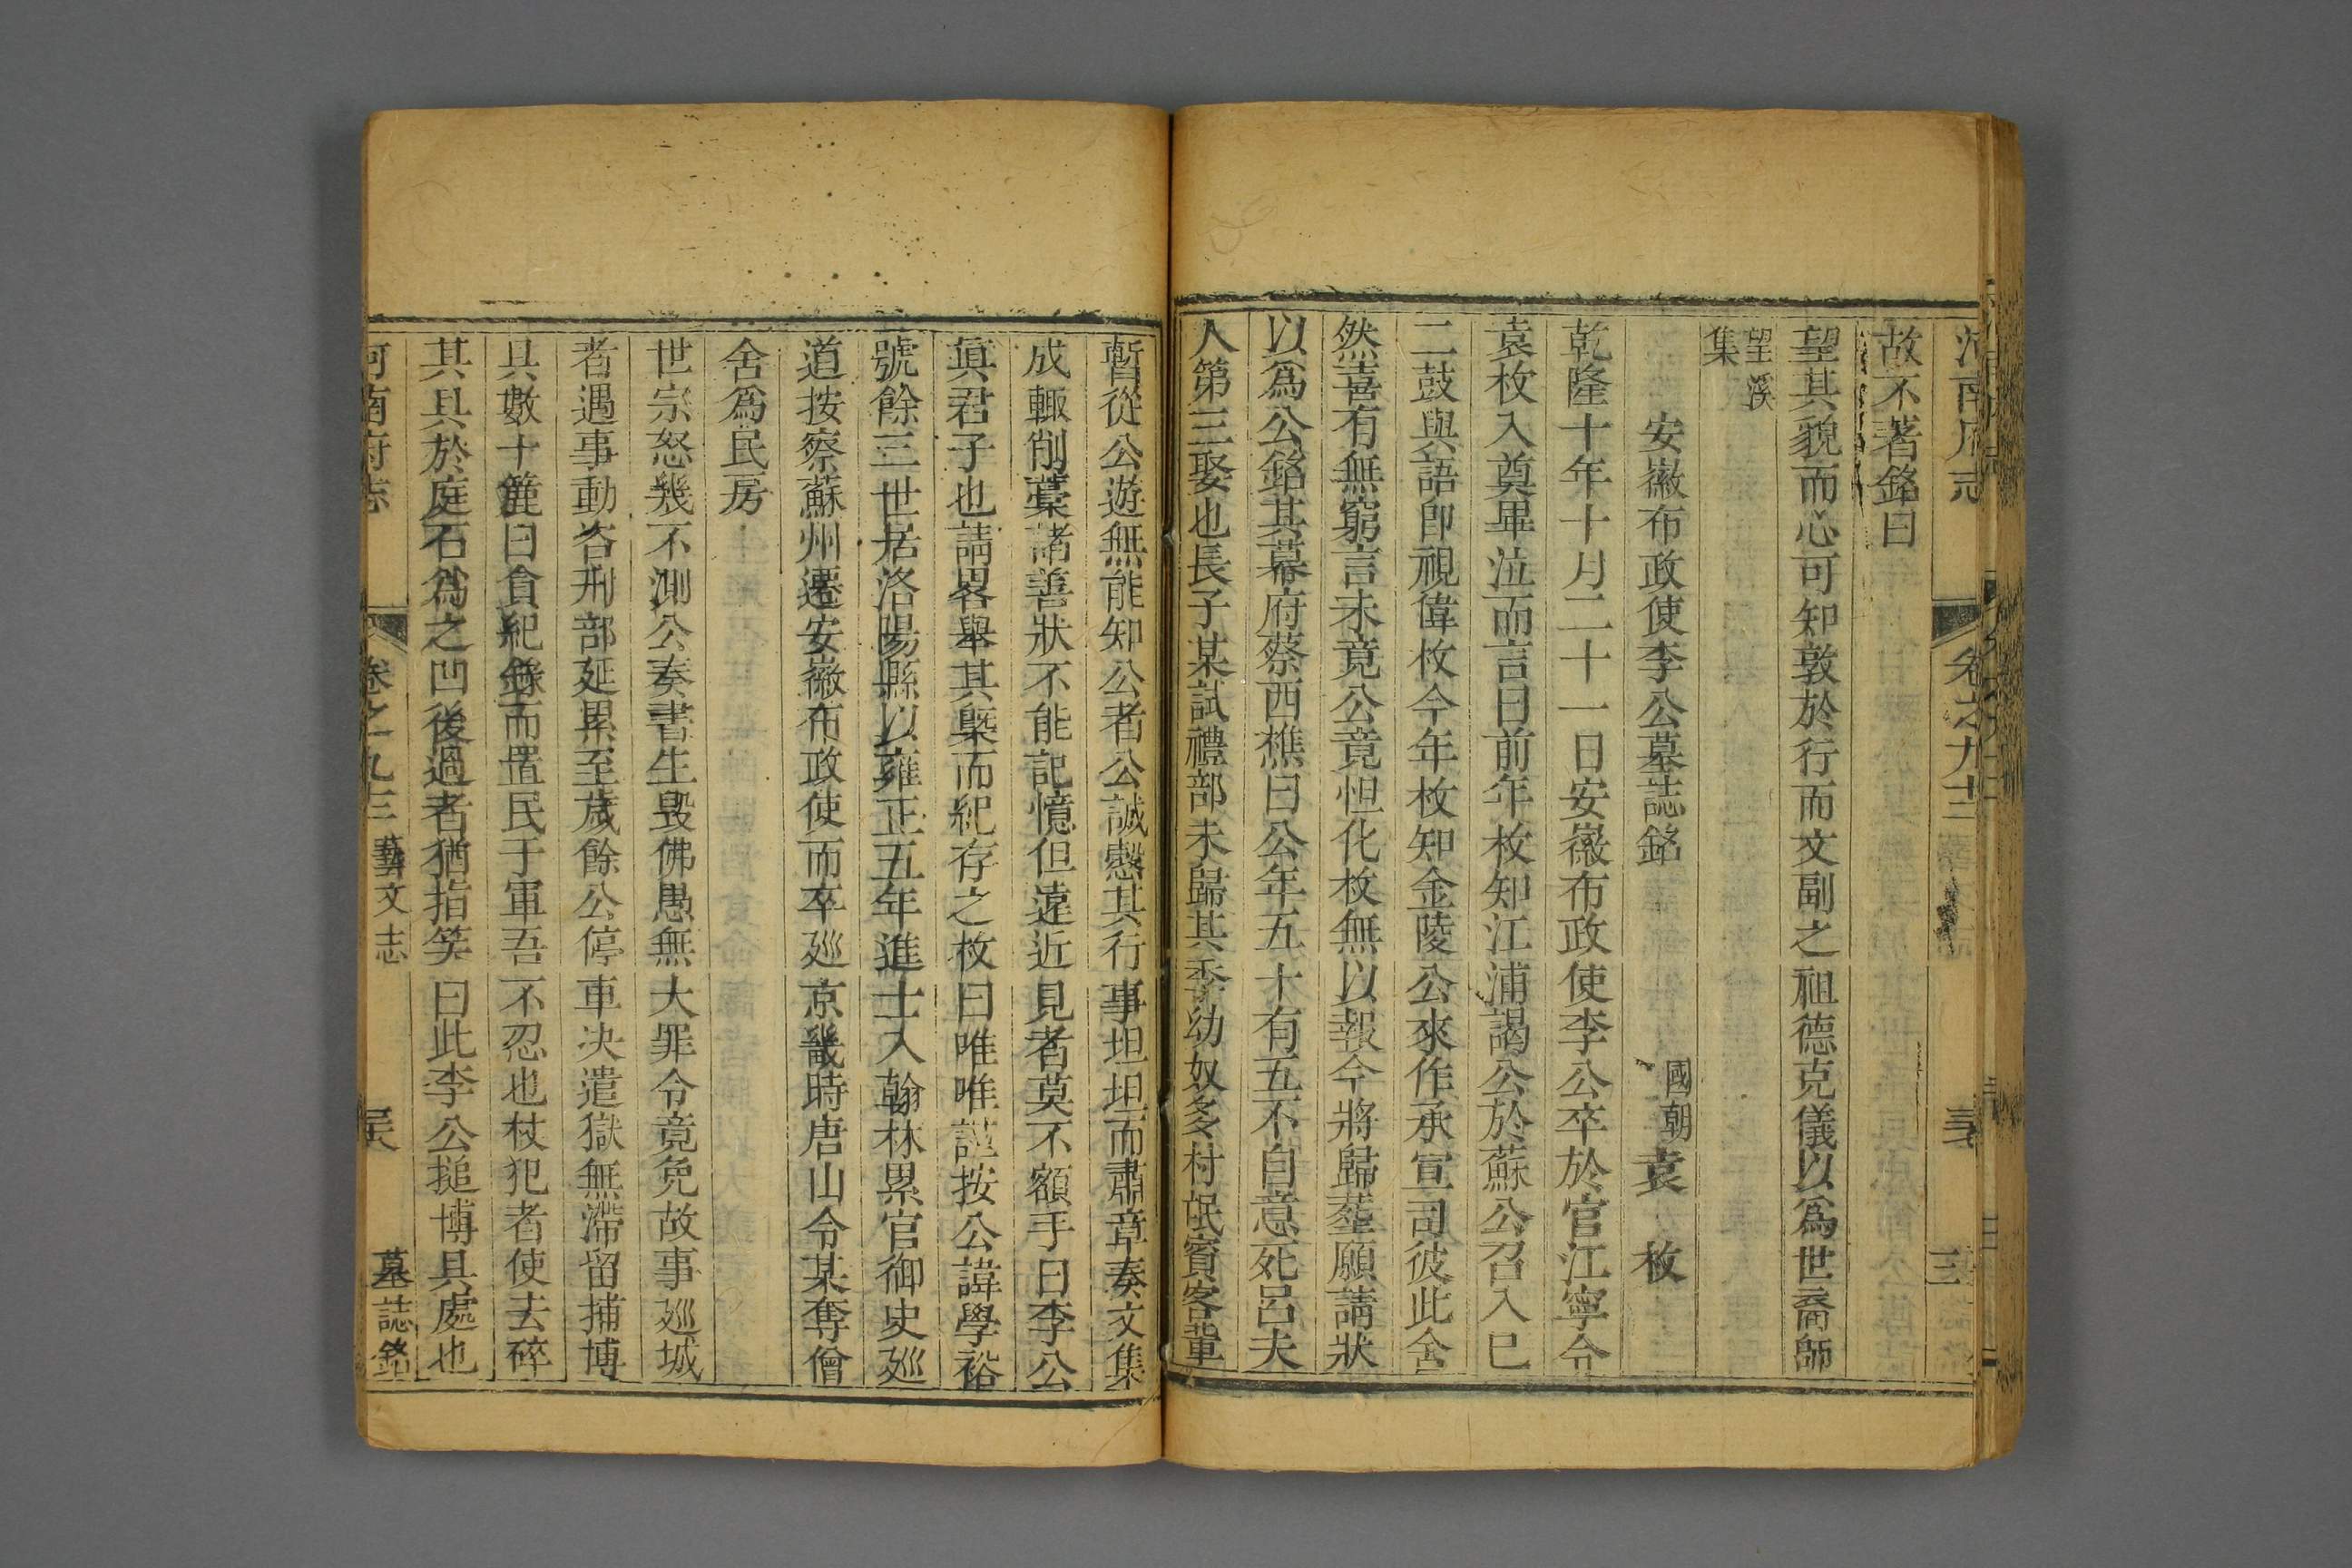 河南府志 卷之九十三
故不著銘曰
望其貌而心可知敦於行而文副之祖德克儀以爲世裔師
望溪
集
安徽布政使李公墓誌銘
國朝袁枚
乾隆十年十月二十一日安徽布政使李公卒於官江寧令
袁枚入奠畢泣而言曰前年枚知江浦謁公於蘇公召入巳
二鼓與語卽視偉枚今年枚知金陵公來作承宣司彼此舍
然喜有無窮言未竟公竟怛化枚無以報今將歸塟願請狀
以爲公銘其幕府蔡西樵曰公年五十有五不自意死呂夫
人第三娶也長子某試禮部未歸其季幼奴多村氓賓客軰
暫從公遊無能知公者公誠慤其行事坦坦而肅章奏文集
成輒削藁諸善狀不能記憶但遠近見者莫不額手曰李公
眞君子也請畧舉其槩而紀存之枚曰唯唯謹按公諱學裕
號餘三世居洛陽縣以雍正五年進士入翰林累官御史廵
道按察蘇州遷安徽布政使而卒廵京畿時唐山令某奪僧
舍爲民房
世宗怒幾不測公奏書生毀佛愚無大罪令竟免故事廵城
者遇事動咨刑部延累至歲餘公停車决遣獄無滯留捕博
具數十簏曰貪紀錄而置民于軍吾不忍也杖犯者使去碎
其具於庭石爲之凹後過者猶指笑曰此李公搥博具處也
河南府志 卷之九三 藝文志 墓誌銘